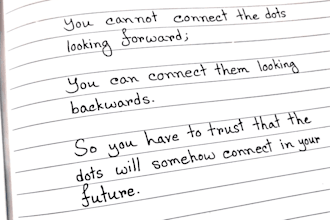 You cannot connect the dots
looking forward;
You can connect them looking
backwards.
So you have to trust that the
dots will somehow connect in your
future.